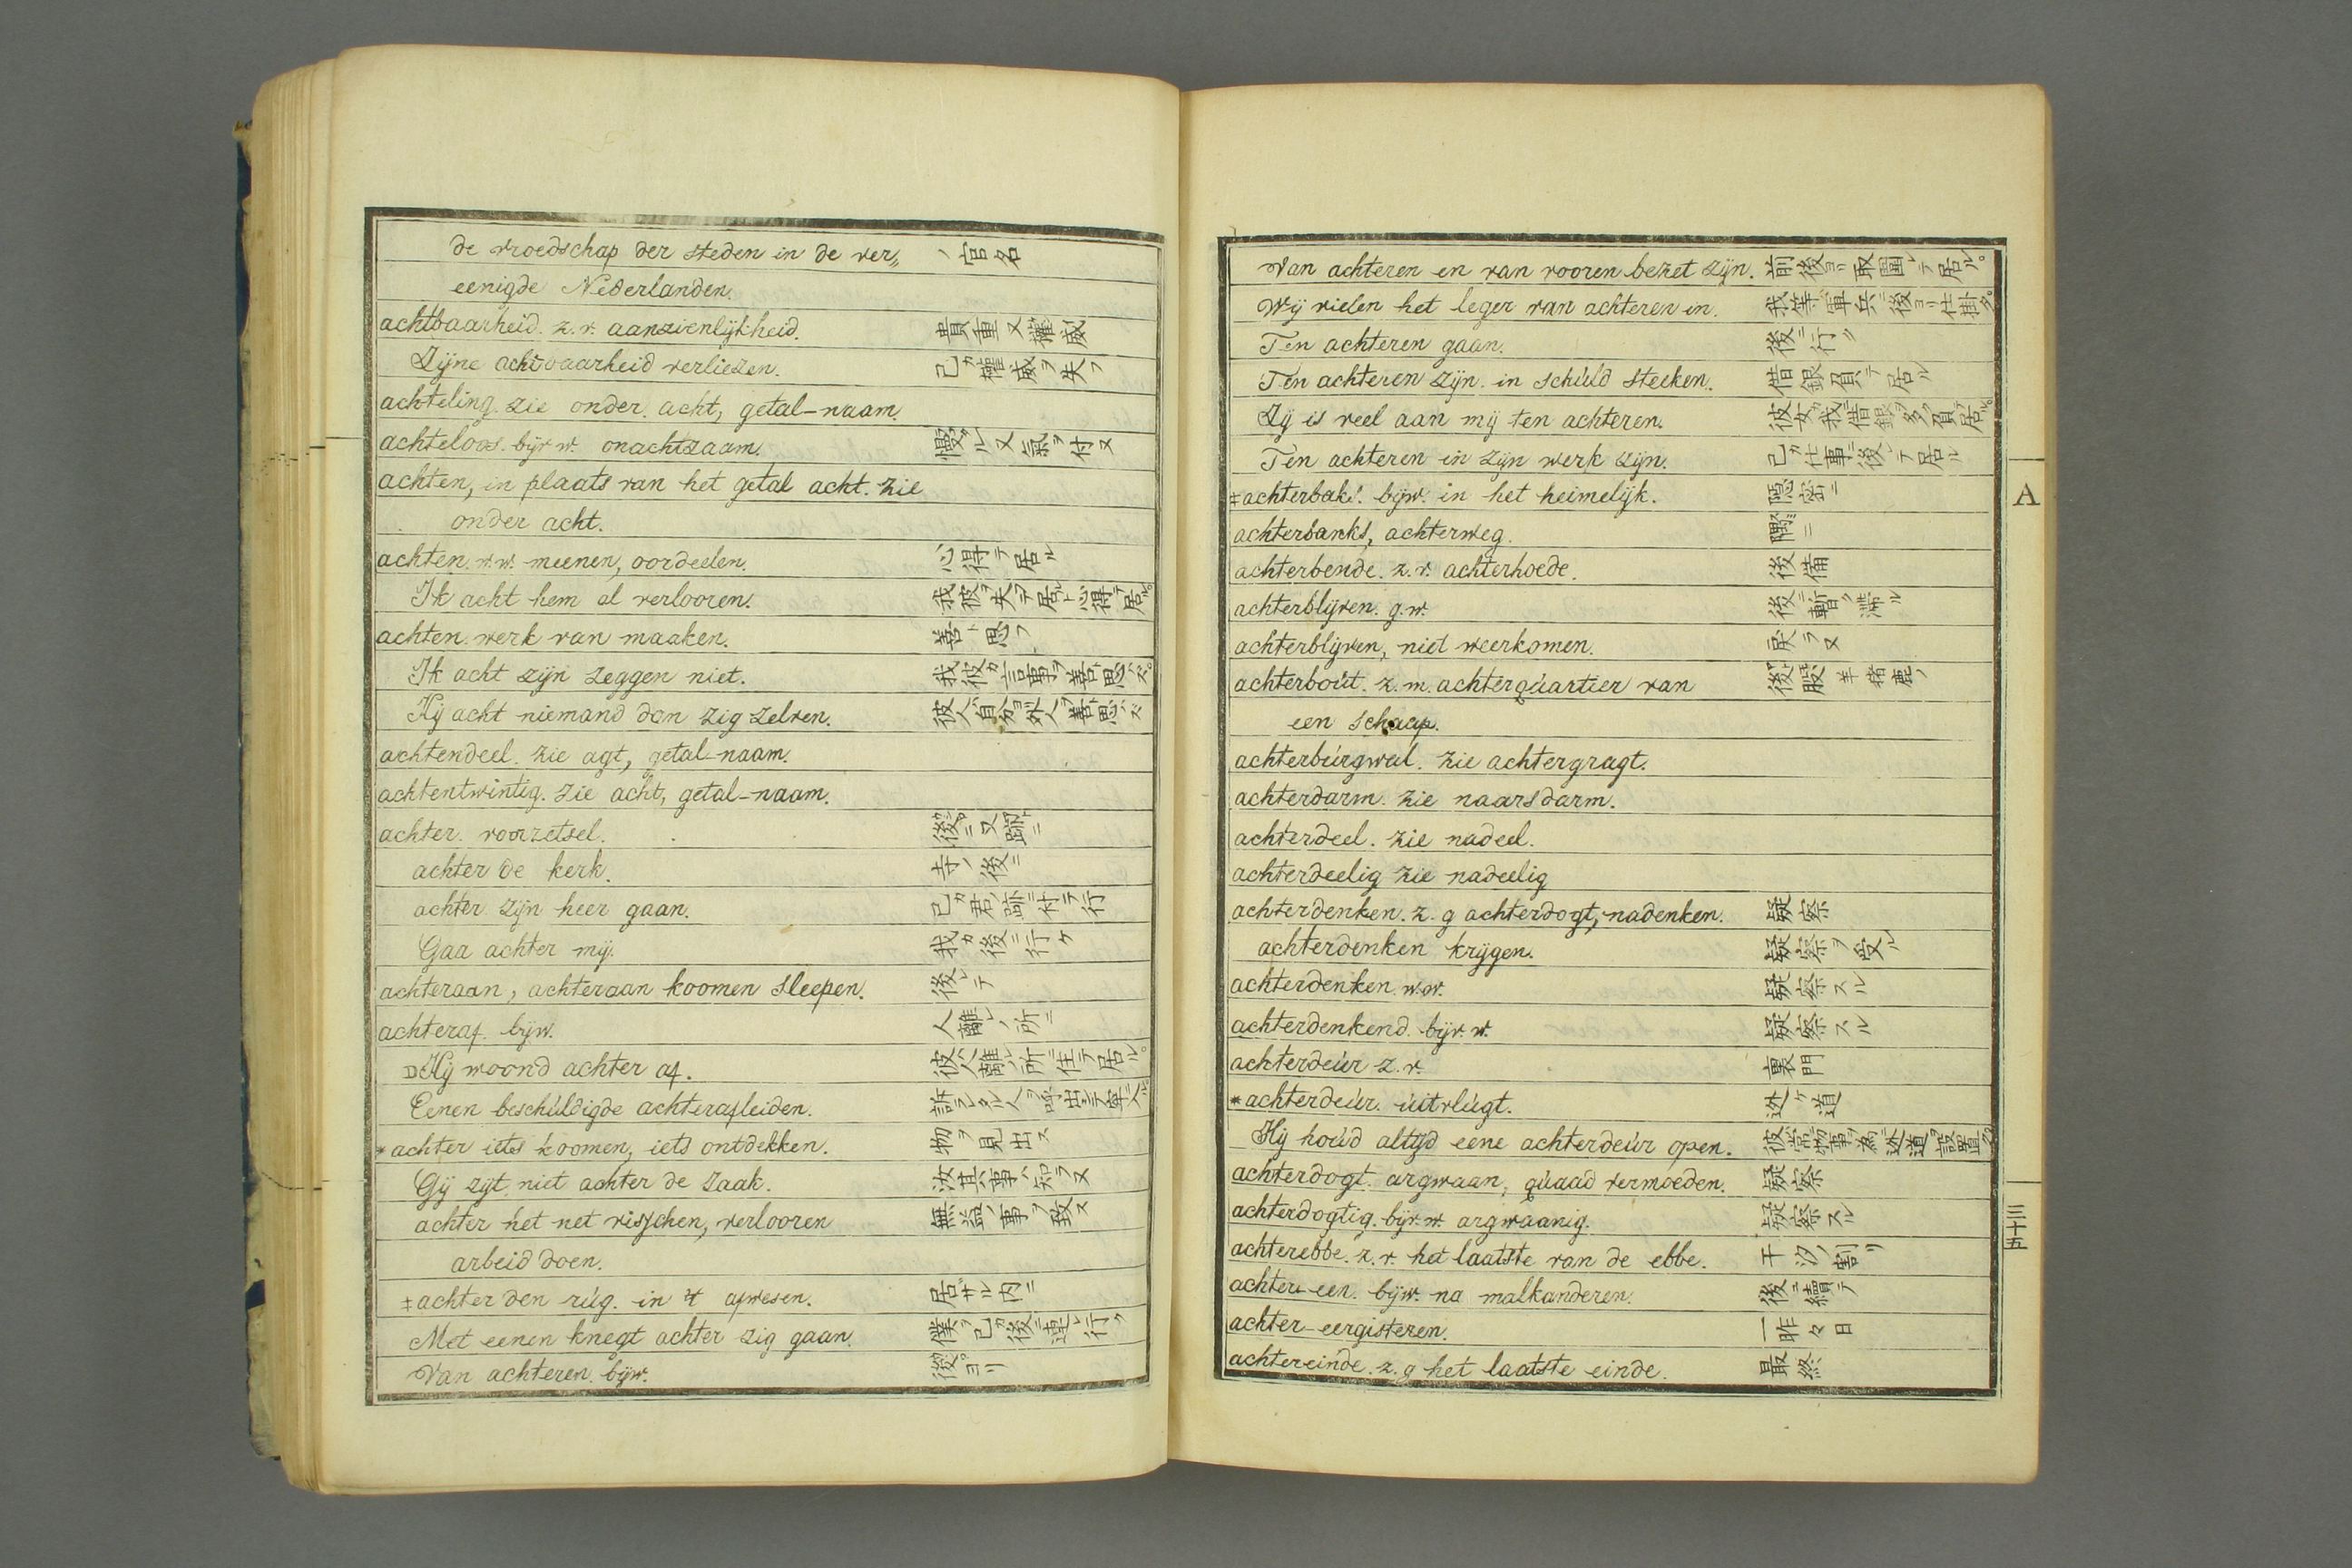 de vroedschap der steden in de ver„ ノ官名
eenigde Nederlanden.
achtbaarheid. z. v. aanzienlijkheid. 貴重又權威
Zijne achtbaarheid verliezen. 己カ權威ヲ失フ
achteling. zie onder. acht, getal-naam.
achteloos. bijv w. onachtzaam. 慢ル又氣ヲ付ヌ
achten, in plaats van het getal acht. zie
onder acht.
achten. w.w. meenen, oordeelen. 心得テ居ル
Ik acht hem al verlooren. 我彼ヲ失フテ居ト心得テ居ル。
achten. werk van maaken. 善ト思フ
Ik acht zijn zeggen niet. 我彼カ言事ヲ善ト思ハズ。
Hij acht niemand dan zig zelven. 彼人自分ヨリ外人ヲ善ト思ハズ
achtendeel. zie agt, getal-naam.
achtentwintig. zie acht, getal-naam.
achter. voorzetsel. 後ニ又跡ニ
achter de kerk. 寺ノ後ニ
achter zijn heer gaan. 己カ君ノ跡ニ付テ行
Gaa achter mij. 我カ後ニ行ケ
achteraan, achteraan koomen sleepen. 後レテ
achteraf. bijw. 人離レノ所ニ
Hij woond achter af. 彼人離レノ所ニ住テ居ル。
Eenen beschúldigde achterafleiden.
*achter iets koomen, iets ontdekken. 物ヲ見出ス
Gij zijt niet achter de zaak. 汝其事ハ知ラヌ
achter het net visschen, verlooren 無益ノ事ヲ致ス
arbeid doen.
‡achter den rúg. in 't afwesen. 居サル内ニ
Met eenen knegt achter zig gaan. 僕ヲ己カ後ニ連レ行ク
Van achteren. bijw. 後ヨリ
Van achteren en van vooren bezet zijn. 前後ヨリ取圍レテ居ル。
Wij vielen het leger van achteren in. 我等軍兵ニ後ヨリ仕掛タ。
Ten achteren gaan. 後ニ行ク
Ten achteren zijn. in schúld steeken. 借銀負テ居ル
Zij is veel aan mij ten achteren. 彼女我ニ借銀ヲ多ク負テ居ル。
Ten achteren in zijn werk zijn. 己カ仕事ニ後レテ居ル
‡achterbaks. bijw. in het heimelijk. 隱密ニ
achterbanks, achterweg. 隅ニ
achterbende. z. v. achterhoede. 後備
achterblijven. g. w. 後ニ暫ク滯ル
achterblijven, niet weerkomen. 戻ラヌ
achterboút. z. m. achterqúartier van 後股 羊猪鹿ノ
een schaap.
achterbúrgwal. zie achtergragt.
achterdarm. zie naarsdarm.
achterdeel. zie nadeel.
achterdeelig zie nadeelig
achterdenken. z. g achterdogt, nadenken. 疑察
achterdenken krijgen. 疑察ヲ受ル
achterdenken. w.w. 疑察スル
achterdenkend. bijv. w. 疑察スル
achterdeúr z. v. 裏門
*achterdeúr. úitvlúgt. 迯ケ道
Hij hoúd altijd eene achterdeúr open.
achterdogt. argwaan, qúaad vermoeden. 疑察
achterdogtig. bijv. w. argwaanig. 疑察スル
achterebbe. z. v. het laatste van de ebbe. 干汐ノ割リ
achter een. bijw. na malkanderen. 後ニ續テ
achter-eergisteren. 一昨々日
achtereinde. z. g het laatste einde. 最終
A
三十五